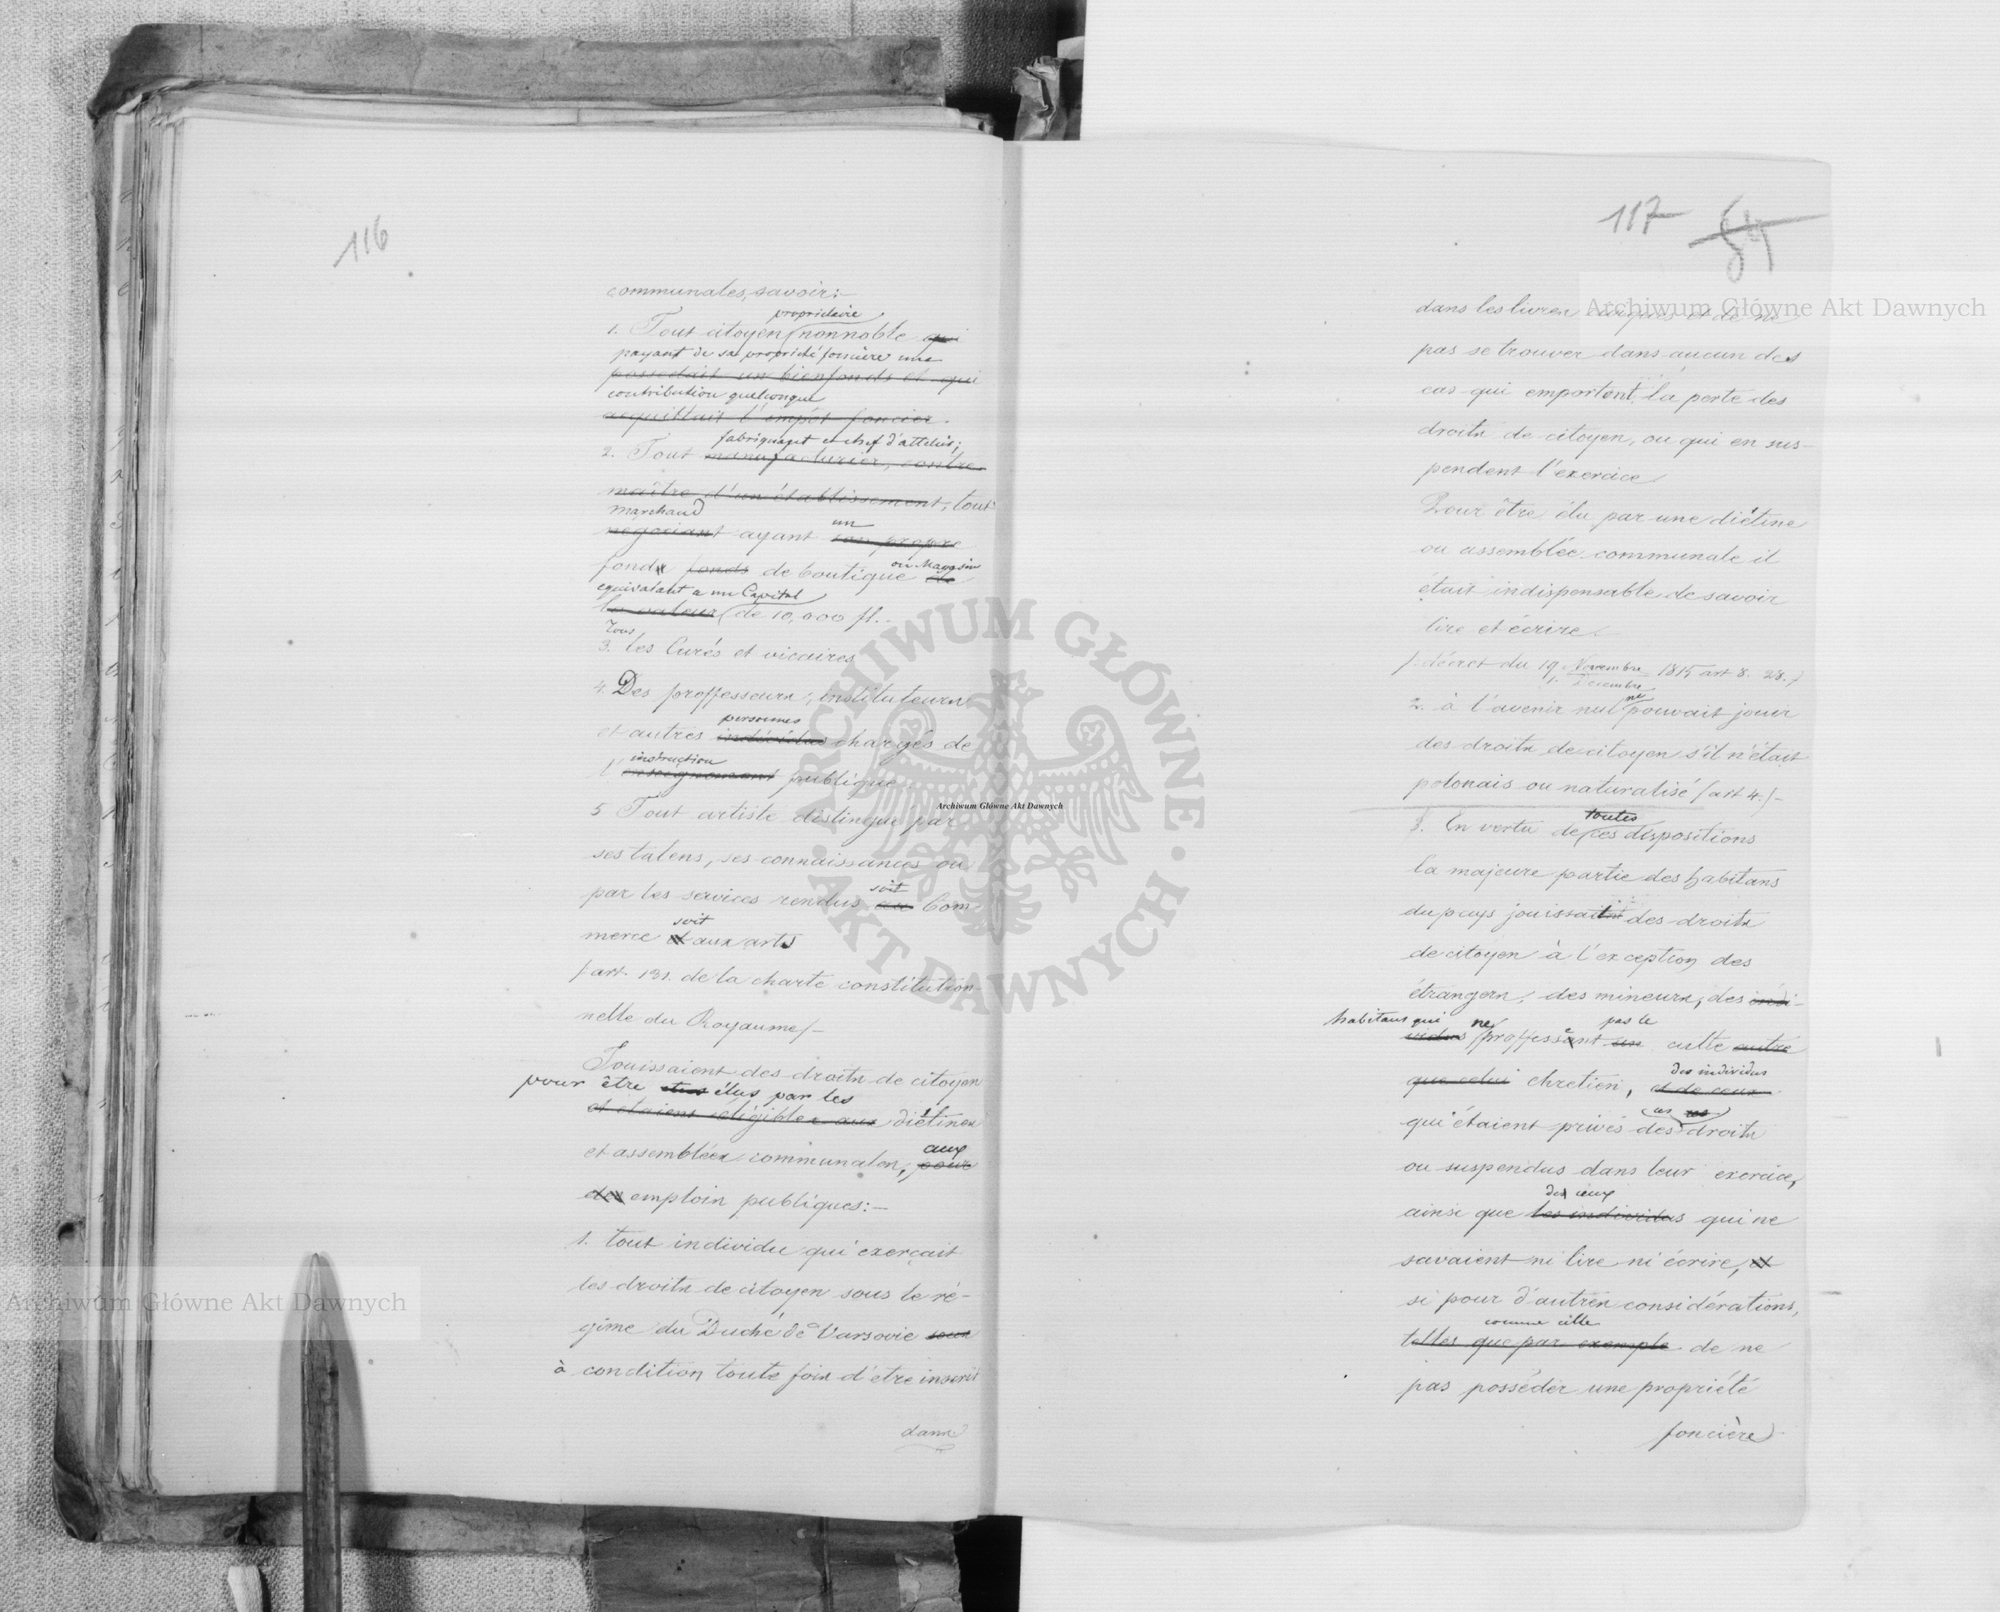 116
communales, savoir:-
propriétaire
1. Tout citoyen nonnoble qui
payant de sa propriété foncière une
possedait un bienfonds et qui
contribution quelconque
acquittait l'impôt foncier.
fabriquant et chef d'attelié;
2. Tout manufacturier, contre-
maître d'un établissement, tout
marchand un
negociant ayant son propre
ou Magasin
fonds fonds de boutique de
equivalant a un Capital
la valeur de 10,000 fl..
Tous
3. les Curés et vicaires
4. Des proffesseurs, instituteurs
personnes
et autres individus chargés de
instruction
l'enseignement publique.
5 Tout artiste distingué par
ses talens, ses connaissances ou
soit
par les services rendus au Com
soit
merce et aux arts
/art. 131. de la charte constitution-
nelle du Royaume/-
Jouissaient des droits de citoyen
pour être élus par les
et étaient éligibles aux diétines
aux
et assemblées communales, pour
des emplois publiques:-
1. tout individu qui exerçait
les droits de citoyen sous le ré-
gime du Duché de Varsovie sous
à condition toute fois d'être inscrit
dans
117 84
dans les livres civiques et de ne
pas se trouver dans aucun des
cas qui emportent la perte des
droits de citoyen, ou qui en sus-
pendent l'exercice
Pour être élu par une diétine
ou assemblée communale il
etait indispensable de savoir
lire et écrire.
/.décret du 19 Novembre 1815 art 8. 28./
1. Decembre
ne
2. à l'avenir nul pouvait jouir
des droits de citoyen s'il n'était
polonais ou naturalisé /art 4./-
toutes
3. En vertu de ces dispositions
la majeure partie des habitans
du pays jouissait des droits
de citoyen à l'exception des
étrangers, des mineurs, des indi-
habitans qui ne pas le
vidus proffessent un culte autre
des individus
que celui chretien, et de ceux
ces
qui étaient privés des droits
ou suspendus dans leur exercice,
de ceux
ainsi que les individus qui ne
savaient ni lire ni écrire, et
si pour d'autres considérations,
comme celle
telles que par exemple de ne
pas posséder une propriété
foncière
Archiwum Główne Akt Dawnych
Archiwum Główne Akt Dawnych
Archiwum Główne Akt Dawnych
ARCHIWUM GŁÓWNE AKT DAWNYCH